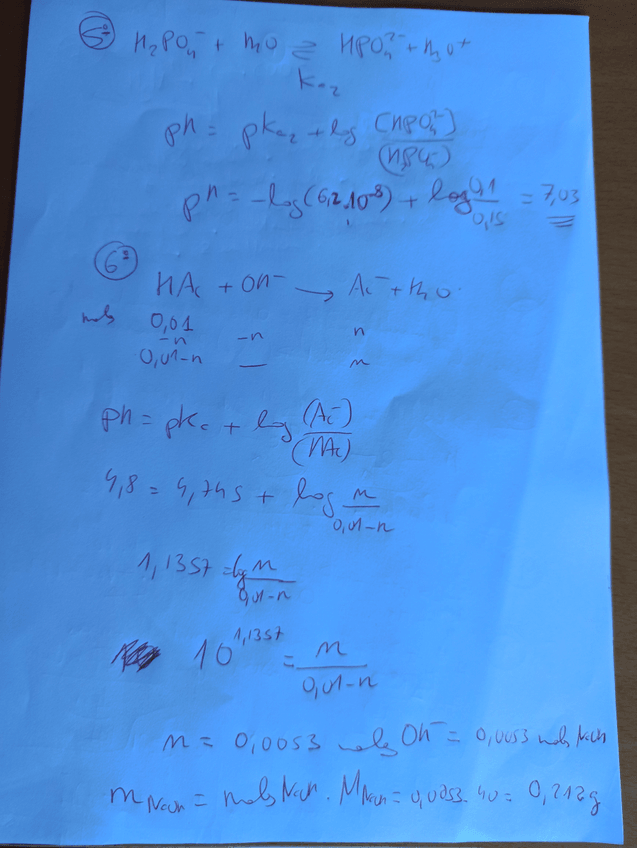 5º H₂PO₄⁻ + H₂O ⇌ HPO₄²⁻ + H₃O⁺
Ka₂
pH = pKa₂ + log (HPO₄²⁻)/(H₂PO₄⁻)
pH = -log(6,2.10⁻⁸) + log 0,1/0,15 = 7,03
6º
HAc + OH⁻ → Ac⁻ + H₂O
mols 0,01
-n -n n
0,01-n — n
pH = pKa + log (Ac⁻)/(HAc)
4,8 = 4,745 + log n/0,01-n
1,1357 = lg n/0,01-n
10^1,1357 = n/0,01-n
n = 0,0053 mols OH⁻ = 0,0053 mols NaOH
m NaOH = mols NaOH . M NaOH = 0,0053 . 40 = 0,212g